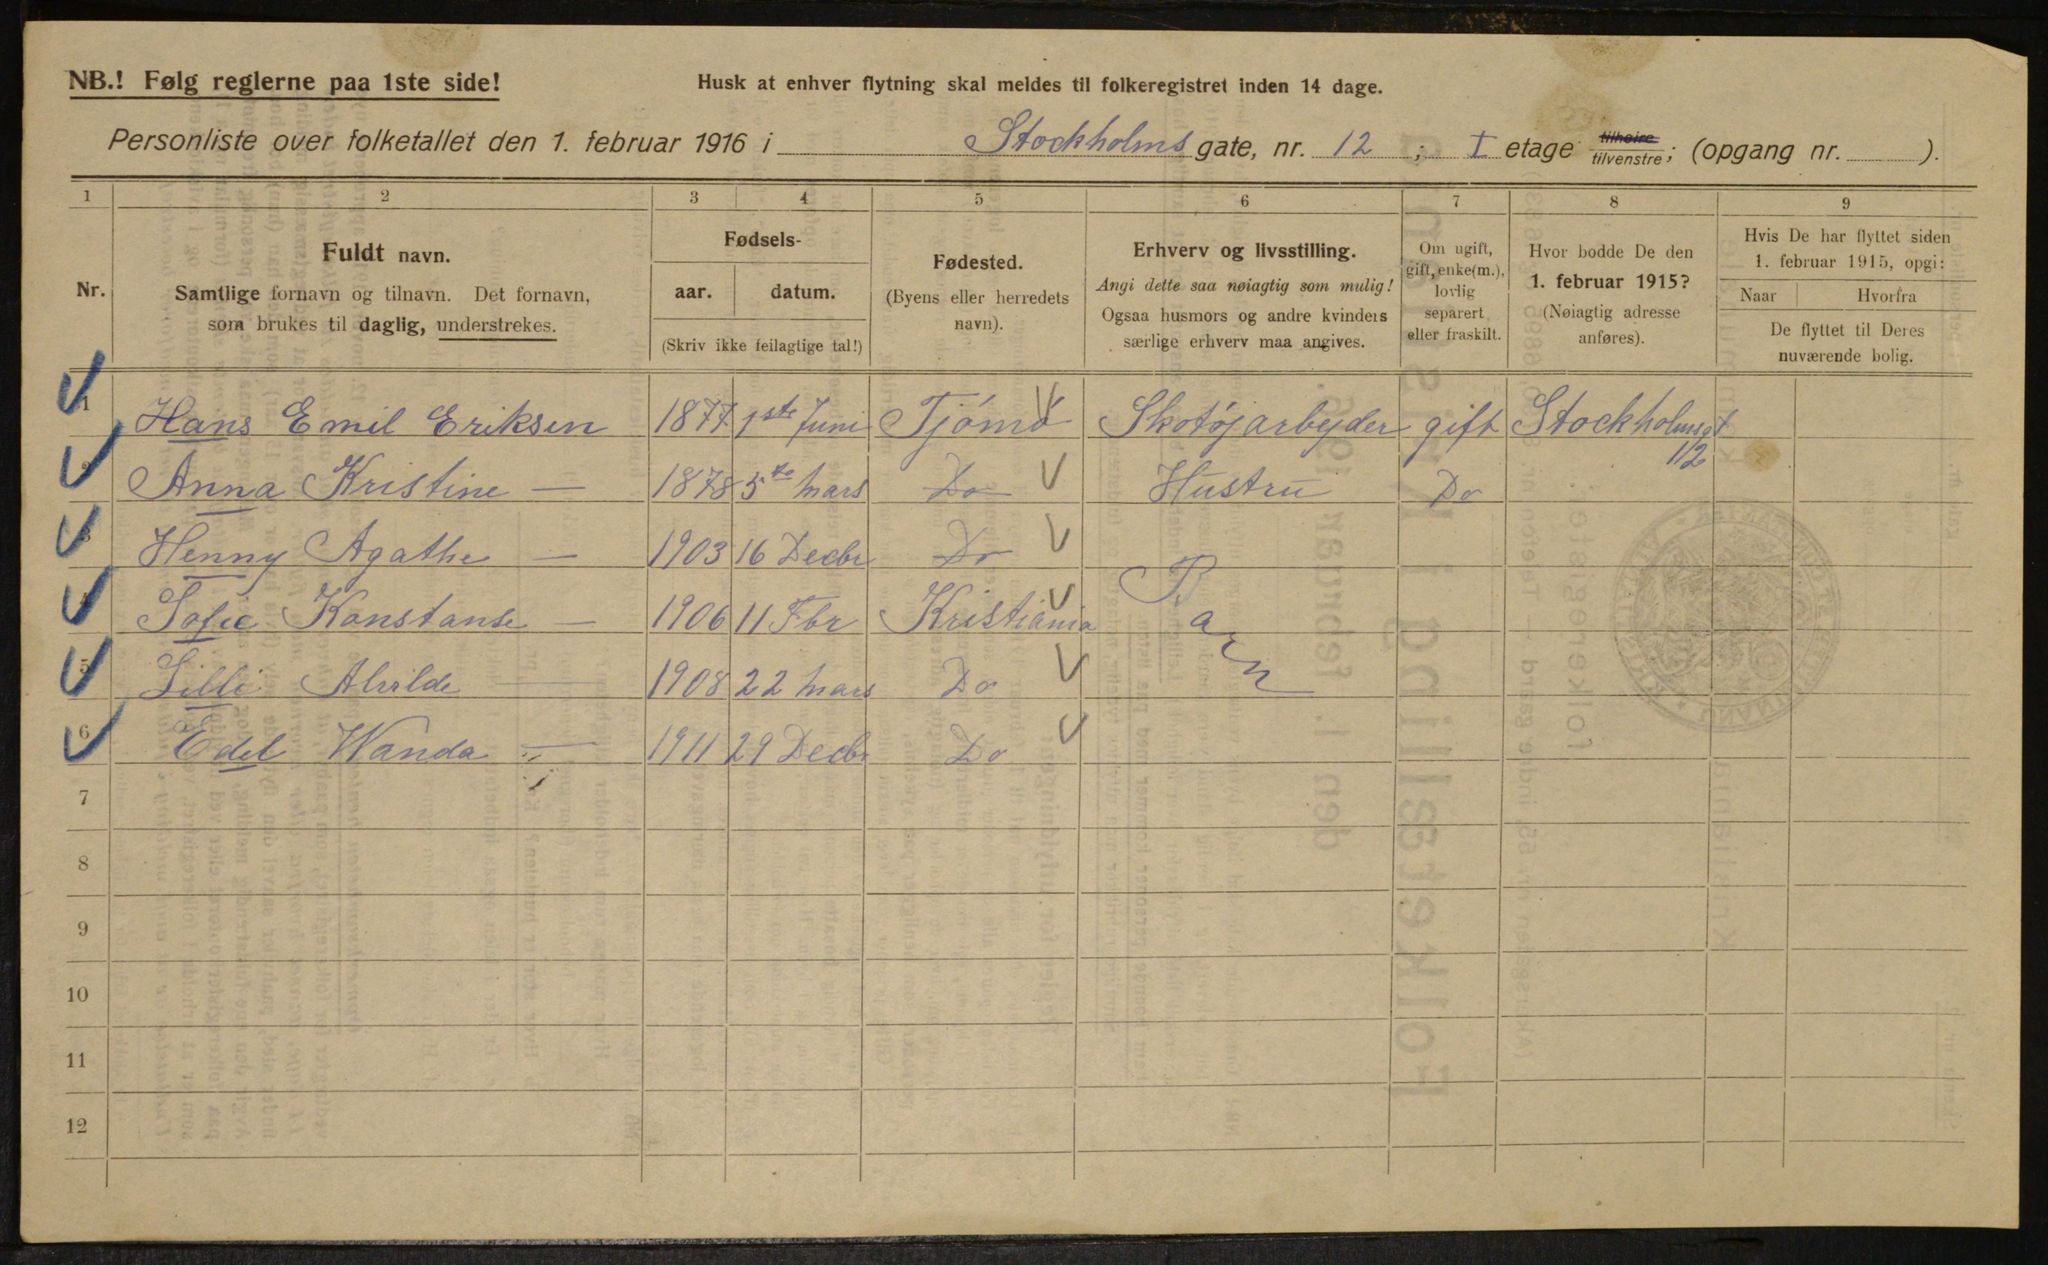 NB.! Følg reglerne paa 1ste side!
Husk at enhver flytning skal meldes til folkeregistret inden 14 dage.
Personliste over folketallet den 1. februar 1916 i Stockholms gate, nr. 12 ; I etage tilhøire tilvenstre; (opgang nr. ).
1 2 3 4 5 6 7 8 9
Nr.
Fuldt navn.
Samtlige fornavn og tilnavn. Det fornavn,
som brukes til daglig, understrekes.
Fødsels-
aar. datum.
(Skriv ikke feilagtige tal!)
Fødested.
(Byens eller herredets
navn).
Erhverv og livsstilling.
Angi dette saa nøiagtig som mulig!
Ogsaa husmors og andre kvinders
særlige erhverv maa angives.
Om ugift,
gift, enke(m.),
lovlig
separert
eller fraskilt.
Hvor bodde De den
1. februar 1915?
(Nøiagtig adresse
anføres).
Hvis De har flyttet siden
1. februar 1915, opgi:
Naar Hvorfra
De flyttet til Deres
nuværende bolig.
1 Hans Emil Eriksen 1877 1ste Juni Tjömö Skotøjarbejder gift Stockholmsgt
12
2 Anna Kristine — 1878 5te Mars Do Hustru Do
3 Henny Agathe — 1903 16 Decbr Do
4 Sofie Konstanse — 1906 11 Fbr Kristiania Barn
5 Lilli Alvilde — 1908 22 Mars Do
6 Edel Wanda — 1911 29 Decbr Do
7
8
9
10
11
12